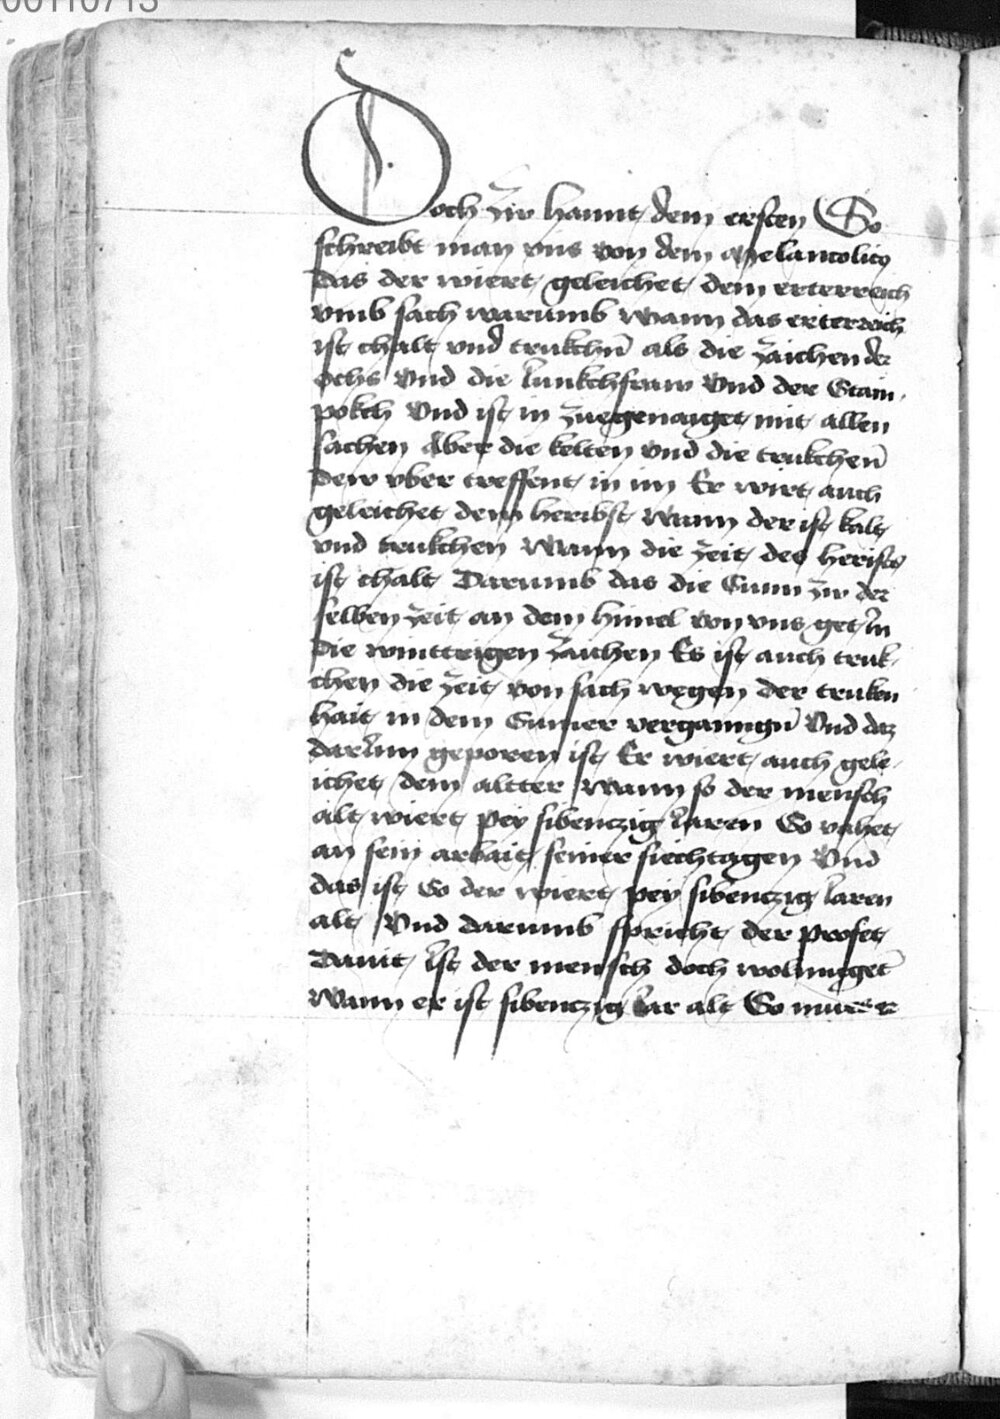 00110713
Doch zw hannt dem ersten So
schreibt man vns von dem Melancolico
Das der wiert geleichet dem erterreich
vmb sach warumb Wann das erterreich
ist chalt vnd trukchn̄ als die zaichen der
Ochs Vnd die Junkchfraw Vnd der Stain
pokch Vnd ist in zuegenaiget mit allen
sachen Aber die kelten vnd die trukchen̄
Dew vber treffent in im Er wirt auch
geleichet dem heribst Wann der ist kalt
vnd trukchen Wann die zeit des herists
ist chalt Darumb das die Sunn zw der
selben zeit an dem himel von vns get In
die wintterigen zaichen Es ist auch truk
chen die zeit von sach wegen der truken
hait in dem Sumer vergangn̄ Vnd daz
darJnn geporen ist Er wiert auch gele
ichet dem altter Wann so der mensch
alt wiert pey sibenczig Jaren So vahet
an sein arbait seiner siechtagen Vnd
das ist So der wiert pey sibenczig Jaren
alt Vnd darumb spricht der profet
Dauit Ist der mensch doch wolmuget̄
Wann er ist sibenczig Jar alt So mues er